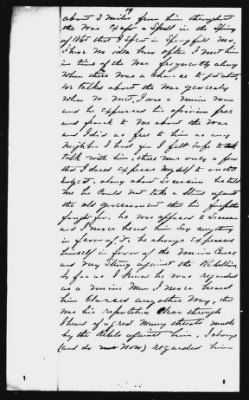 19
about 3 miles from him throughout
the War except a Spell in the Spring
of 1865 that I spent in Springfield Mo,
I have no idea how often I met him
in time of the War frequently along
When there was a chance to go about,
We talked about the War generaly
when we met, I was a Union man
and he expressed his opinion free
and frank to me about the war
and I did as free to him as any
Neighbor I had for I felt safe to
talk with him, there was only a few
that I dared express myself to on the
Subject, along about Secession he told
me he Could not take a Stand against
the old government that his forefathers
fought for, he was opposed to Secession
and I never heard him Say anything
in favor of it, he always expressed
himself in favor of the Union Cause
and very Strong against the Rebellion
So far as I knew he was regarded
as a Union Man I never heard
him Classed any other Way, that
was his reputation Clear through
I heard of a great Many threats made
by the Rebels against him, I always
(and do now) regarded him